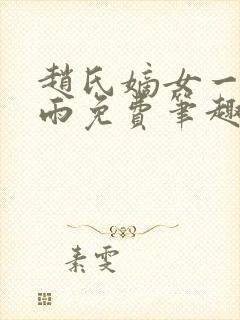 趙氏嫡女一
雨免費筆趣
素雯